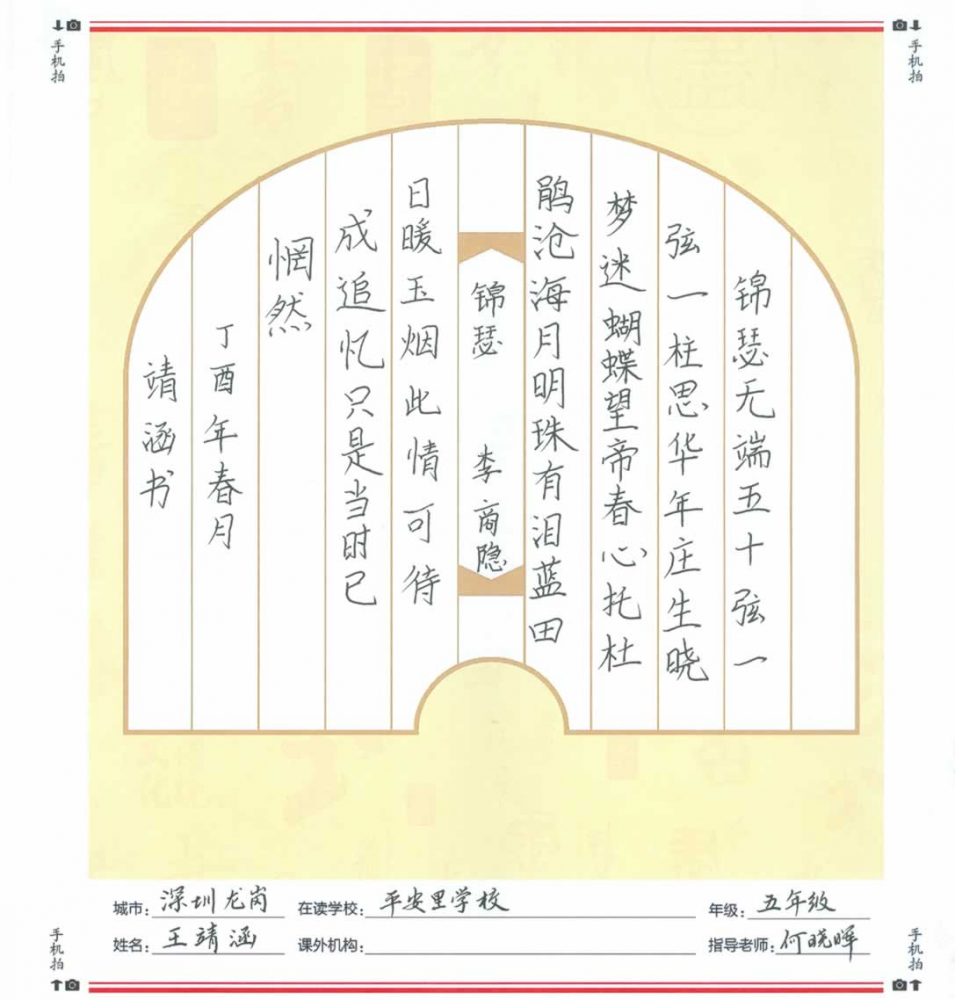 手机拍
手机拍
锦瑟无端五十弦一
弦一柱思华年庄生晓
梦迷蝴蝶望帝春心托杜
鹃沧海月明珠有泪蓝田
锦瑟 李商隐
日暖玉烟此情可待
成追忆只是当时已
惘然
丁酉年春月
靖涵书
城市: 深圳龙岗 在读学校: 平安里学校 年级: 五年级
姓名: 王靖涵 课外机构: 指导老师: 何晓晖
手机拍
手机拍